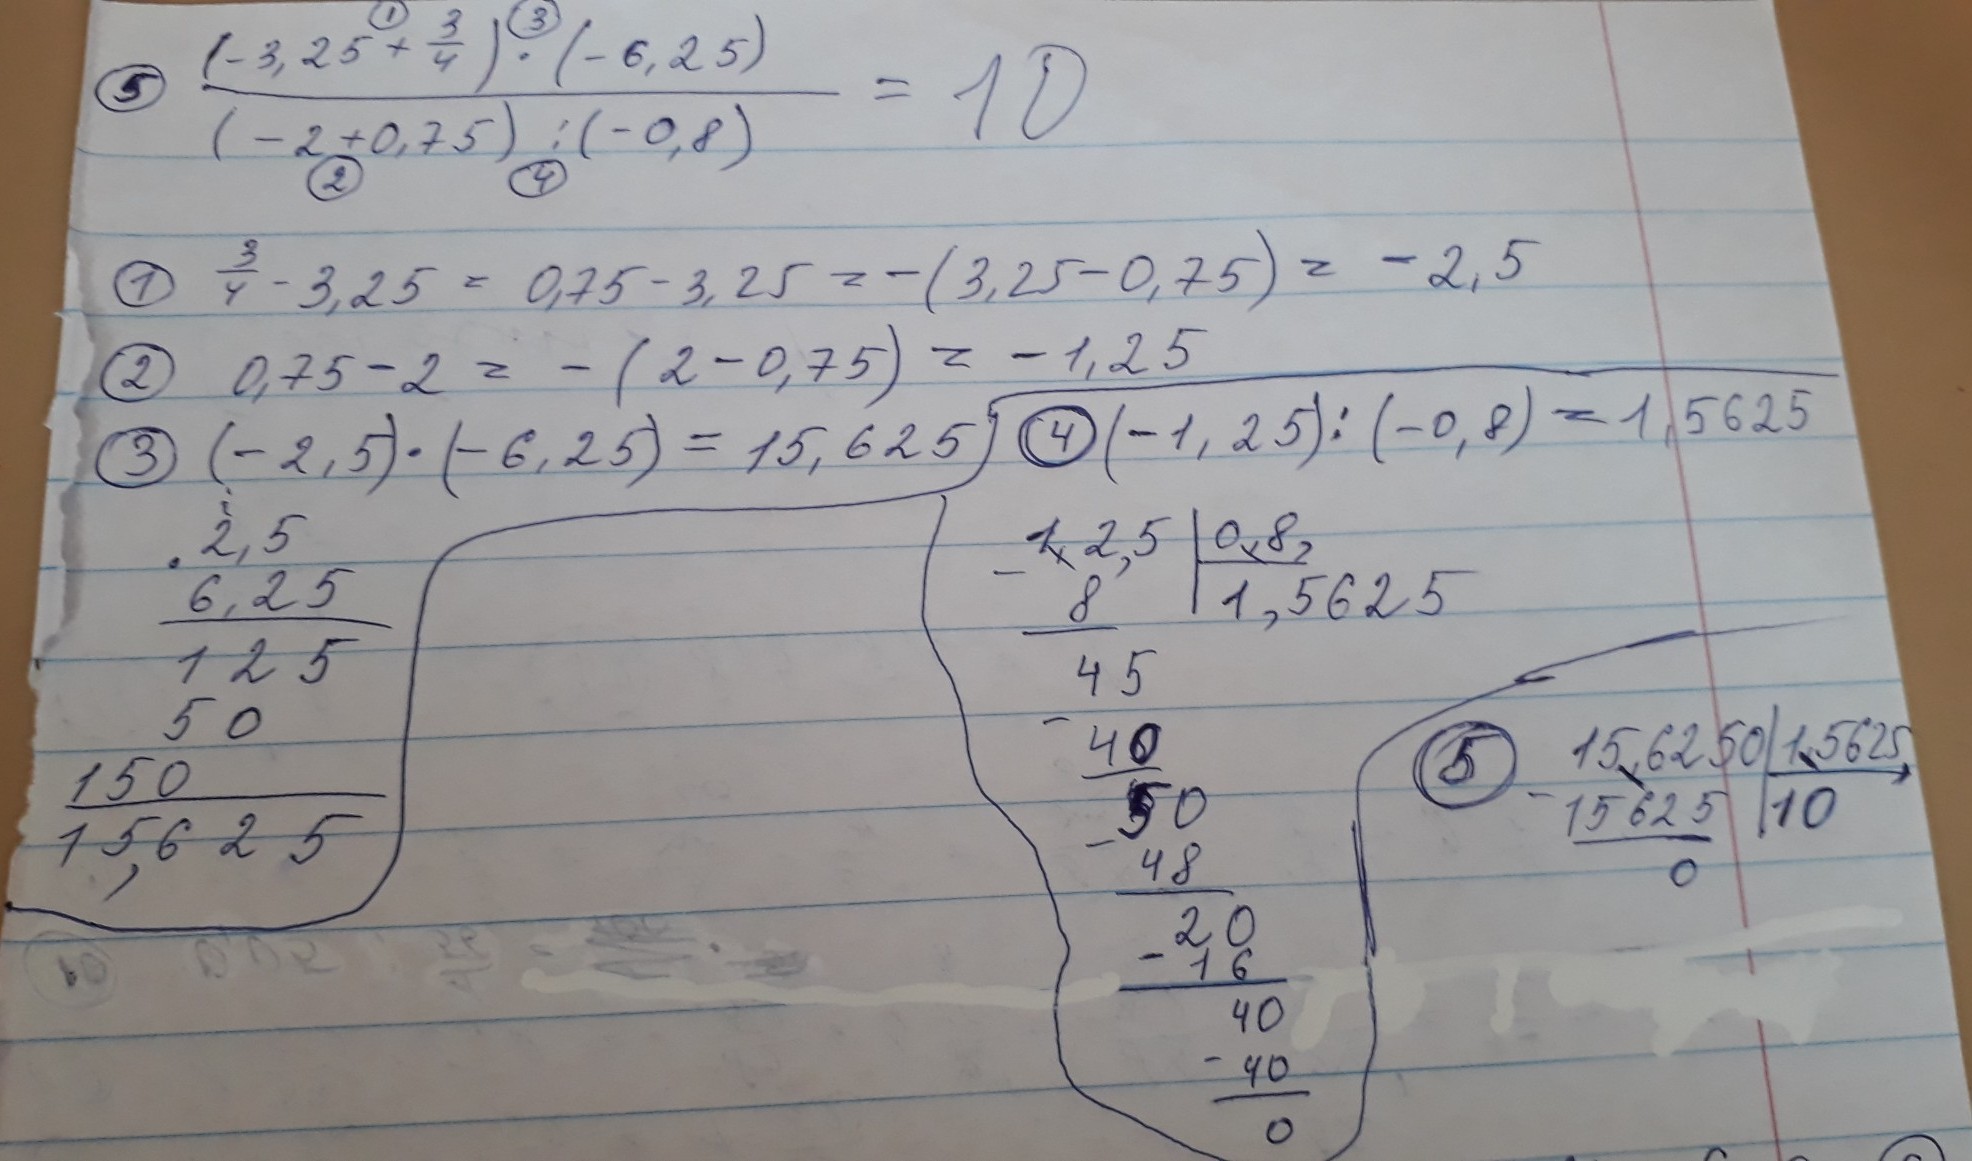 ① ③
⑤ (-3,25 + 3/4) · (-6,25)
(-2+0,75) : (-0,8)
= 10
② ④
① 3/4 - 3,25 = 0,75 - 3,25 = -(3,25-0,75) = -2,5
② 0,75 - 2 = -(2-0,75) = -1,25
③ (-2,5)·(-6,25) = 15,625
2,5
· 6,25
125
50
150
15,625
④ (-1,25) : (-0,8) = 1,5625
- 12,5 | 0,8
8 | 1,5625
45
- 40
50
- 48
20
- 16
40
- 40
0
⑤ 15,6250 | 1,5625
- 15625 | 10
0